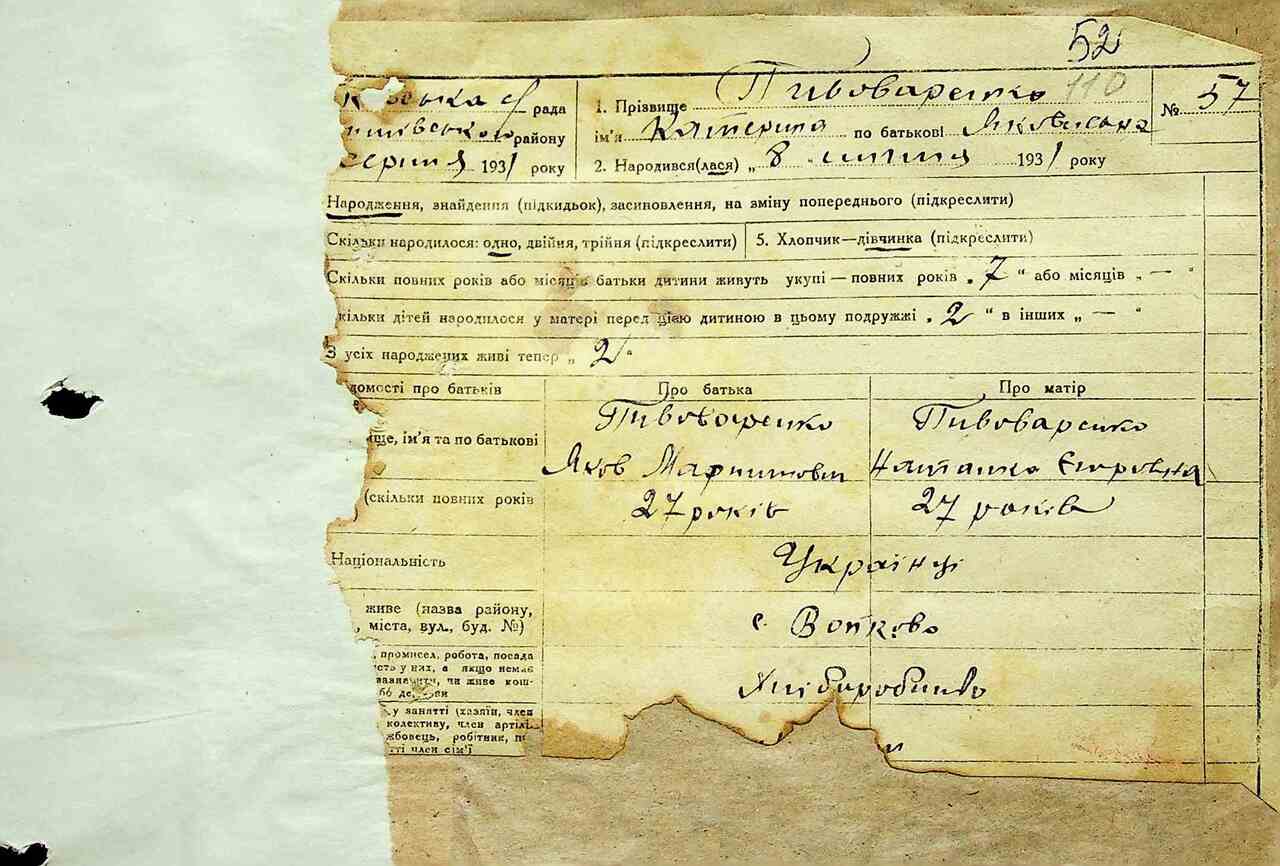 52
110
рада 1. Прізвище Пивоваренко № 57
району ім'я Катерина по батькові Яковлівна
1931 року 2. Народився(лася) „ 8 " липня 1931 року
Народження, знайдення (підкидьок), засиновлення, на зміну попереднього (підкреслити)
Скільки народилося: одно, двійня, трійня (підкреслити) 5. Хлопчик—дівчинка (підкреслити)
Скільки повних років або місяців батьки дитини живуть укупі — повних років „ 7 " або місяців „ — "
кільки дітей народилося у матері перед цією дитиною в цьому подружжі „ 2 " в інших „ — "
З усіх народжених живі тепер „ 2 "
домості про батьків Про батька Про матір
Пивоваренко Пивоваренко
ще, ім'я та по батькові
Яков Наталка Єгоровна
(скільки повних років 27 років 27 років
Національність Українці
живе (назва району, с.
, міста, вул., буд. №)
, промисел, робота, посада
сть у них, а якщо немає Хліборобство
зазначити, чи живе кош-
у занятті (хазяїн, член
колективу, член артілі
жбовець, робітник, п
тті член сім'ї